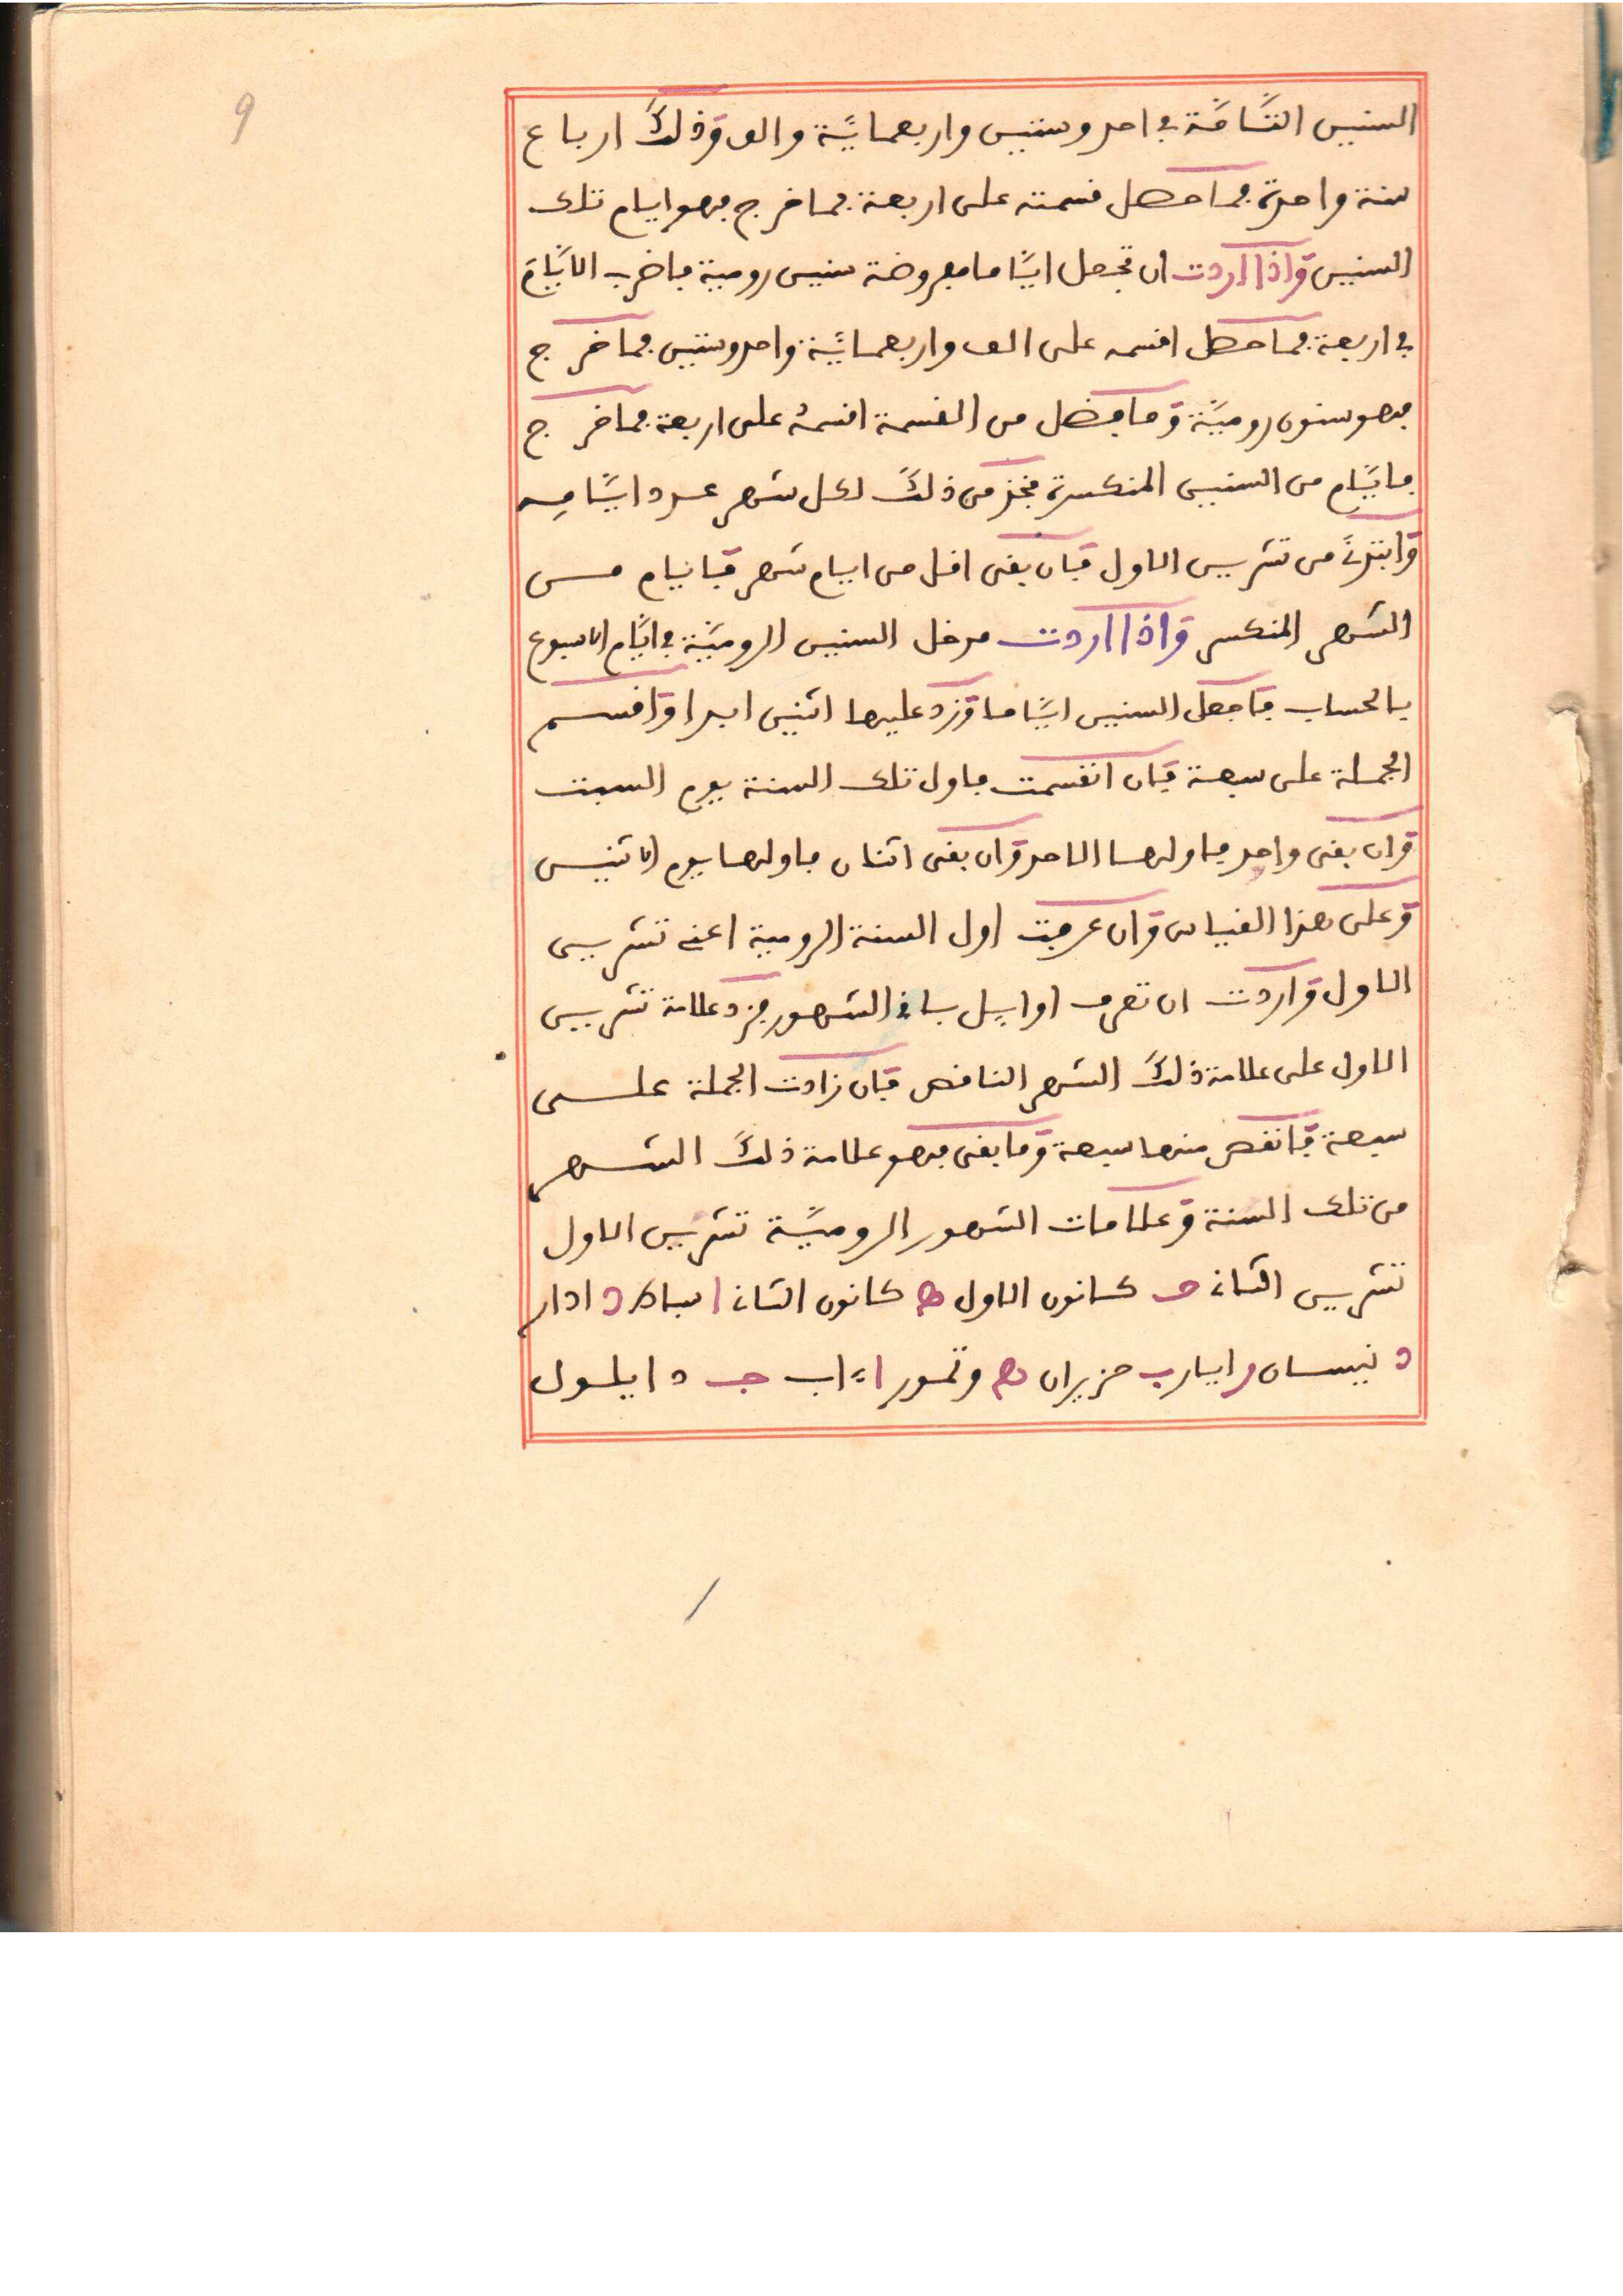 9
السنين التَّامَّة في احد وستين واربعمايَّة والف وَذلكَ ارباع
سنة واحدة فما حصل قسمته على اربعة فما خرج فهو ايام تلك
السنين وَاذا اردت ان تجعل ايَّاما مفروضة سنين رومية فاضرب الايَّامَ
في اربعة فما حصل اقسمه على الف واربعمايَّة واحد وستين فما خرج
فهو سنون روميَّة وَما يفضل من القسمة اقسمهُ على اربعة فما خرج
فايَّام من السنين المنكسرة فخذ من ذلكَ لكل شهر عدد ايَّامِه
وَابتدئ من تشرين الاول فَان بقى اقل من ايام شهر فَايام مــن
الشهر المنكسر وَاذا اردت مدخل السنين الروميَّة في ايَّام الاسبوع
بالحساب فَاجعل السنين ايَّاما وَزد عليها اثنين ابدا وَاقسم
الجملة على سبعة فَان انقسمت فاول تلك السنة يوم السبت
وَان بقى واحد فاولها الاحد وَان بقى اثنان فاولها يوم الاثنين
وَعلى هذا القياس وَان عرفت اول السنة الرومية اعني تشرين
الاول وَاردت ان تعرف اوايل باقي الشهور فزد علامة تشرين
الاول على علامة ذلكَ الشهر الناقص فَان زادت الجملة على
سبعة فَانقص منها سبعة وَما بقى فهو علامة ذلكَ الشهر
من تلك السنة وَعلامات الشهور الروميَّة تشرين الاول
تشرين الثاني ج كانون الاول ه كانون الثاني ا اسباط د ادار
د نيسان و ايار ب حزيران ه وتموز ا ءاب ج د ايلول